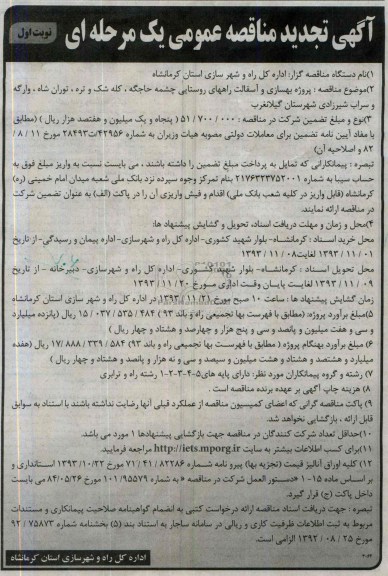 آگهی تجدید مناقصه عمومی یک مرحله ای
نوبت اول
۱)نام دستگاه مناقصه گزار: اداره کل راه و شهر سازی استان کرمانشاه
۲)موضوع مناقصه : پروژه بهسازی و آسفالت راههای روستایی چشمه حاجگه ، کله شک و تره ، توران شاه ، وارگه
و سراب شیرزادی شهرستان گیلانغرب
۳)نوع و مبلغ تضمین شرکت در مناقصه : ۵۱ / ۷۰۰ / ۰۰۰ ( پنجاه و یک میلیون و هفتصد هزار ریال ) (مطابق
با مفاد آیین نامه تضمین برای معاملات دولتی مصوبه هیات وزیران به شماره ۴۲۹۵۶/ت۲۸۴۹۳ مورخ ۱۱ / ۸ /
۸۲ و اصلاحیه آن)
تبصره : پیمانکارانی که تمایل به پرداخت مبلغ تضمین را داشته باشند ، می بایست نسبت به واریز مبلغ فوق به
حساب سیبا به شماره ۲۱۷۶۳۲۳۷۵۲۰۰۱ بنام تمرکز وجوه سپرده نزد بانک ملی شعبه میدان امام خمینی (ره)
کرمانشاه (قابل واریز در کلیه شعب بانک ملی) اقدام و فیش واریزی آن را در پاکت (الف) به عنوان تضمین شرکت
در مناقصه ارائه نمایند.
۴)محل و زمان و مهلت دریافت اسناد، تحویل و گشایش پیشنهاد ها:
محل خرید اسناد : کرمانشاه- بلوار شهید کشوری- اداره کل راه و شهرسازی- اداره پیمان و رسیدگی- از تاریخ
۰۱ / ۱۱ / ۱۳۹۳ لغایت ۰۸ / ۱۱ / ۱۳۹۳
محل تحویل اسناد : کرمانشاه- بلوار شهید کشوری- اداره کل راه و شهرسازی- دبیرخانه - از تاریخ
۰۹ / ۱۱ / ۱۳۹۳ لغایت پایان وقت اداری مورخ ۲۰ / ۱۱ / ۱۳۹۳
زمان گشایش پیشنهاد ها : ساعت ۱۰ صبح مورخ ۲۱ / ۱۱ / ۱۳۹۳ در اداره کل راه و شهر سازی استان کرمانشاه
۵)مبلغ برآورد پروژه: (مطابق با فهرست بها تجمیعی راه و باند ۹۳ ) ۴۸۴ / ۵۳۵ / ۰۳۷ / ۱۵ ریال (پانزده میلیارد
و سی و هفت میلیون و پانصد و سی و پنج هزار و چهارصد و هشتاد و چهار ریال )
۶) مبلغ برآورد بهنگام پروژه ( مطابق با فهرست بها تجمیعی راه و باند ۹۳) ۵۸۴ / ۳۳۹ / ۸۸۸ / ۱۷ ریال (هفده
میلیارد و هشتصد و هشتاد و هشت میلیون و سیصد و سی و نه هزار و پانصد و هشتاد و چهار ریال )
۷) رشته و گروه پیمانکاران مورد نظر: دارای پایه های ۵-۴-۳-۲-۱ رشته راه و ترابری
۸) هزینه چاپ آگهی بر عهده برنده مناقصه است .
۹) پاکت مناقصه گرانی که اعضای کمیسیون مناقصه از عملکرد قبلی آنها رضایت نداشته باشند با استناد به سوابق
قابل ارائه ، بازگشایی نخواهد شد.
۱۰)حداقل تعداد شرکت کنندگان در مناقصه جهت بازگشایی پیشنهادها ۱ مورد می باشد.
۱۱)برای کسب اطلاعات بیشتر به سایت http://iets.mporg.ir مراجعه فرمایید.
۱۲) کلیه اوراق آنالیز قیمت (تجزیه بها) پیرو نامه شماره ۸۲۲۸۶ / ۴۱ / ۷۱ مورخ ۱۳۹۳/۱۰/۲۲ استانداری و
بر اساس ماده ۱۵-۱ «دستور العمل شرکت در مناقصه » به شماره ۱۰۱/۹۵۵۷۹ مورخ ۸۴/۰۵/۲۶ می بایست
داخل پاکت (ج) قرار گیرد.
تبصره : جهت دریافت اسناد مناقصه ارائه درخواست کتبی به انضمام گواهینامه صلاحیت پیمانکاری و مستندات
مربوط به ثبت اطلاعات ظرفیت کاری و ریالی در سامانه ساجار به استناد بند (۵) بخشنامه شماره ۷۵۸۷۳ / ۹۲
مورخ ۲۵ / ۰۸ / ۱۳۹۲ الزامی است.
اداره کل راه و شهرسازی استان کرمانشاه